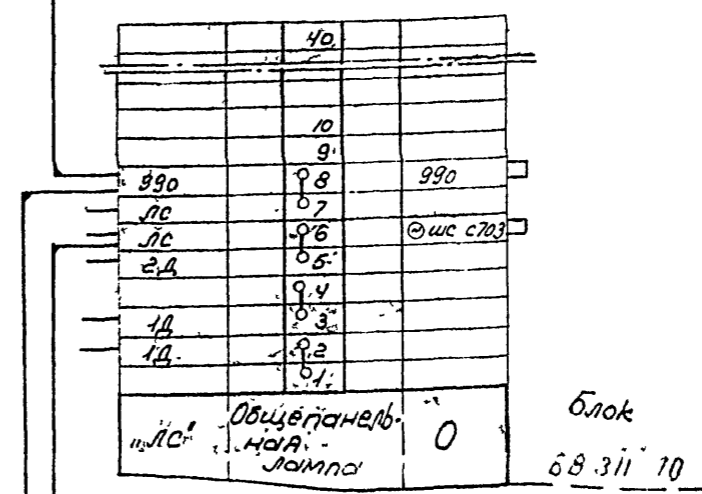 40
10
9
990 8 990
ЛС 7
ЛС 6 ~ шс с703
2Д 5
4
1Д 3
1Д 2
1
"ЛС" Общепанель- О
ная
лампа
Блок